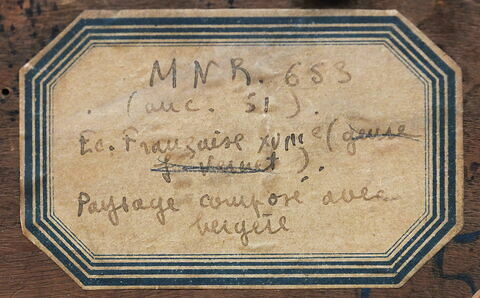 MNR. 653
(anc. 51)
Ec. Française XVIIIe (genre
J. Vernet)
Paysage composé avec
bergère